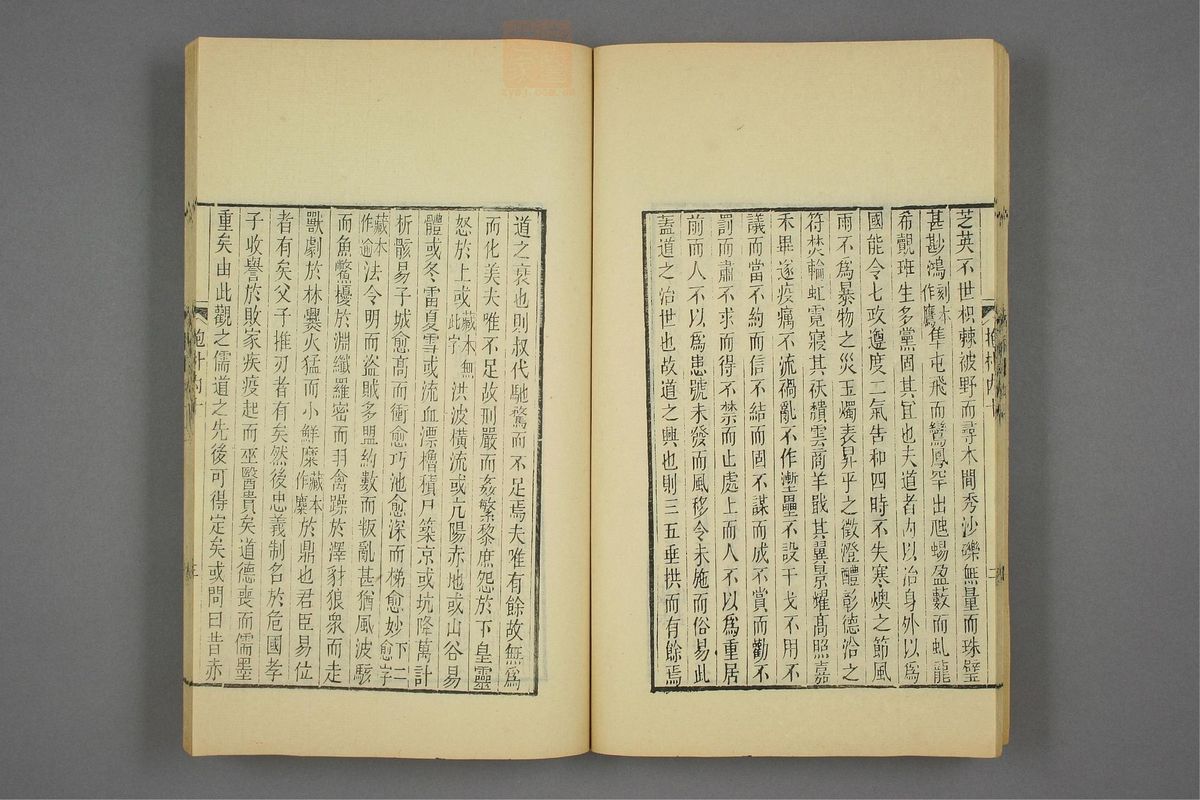 芝英不世枳棘被野而尋木間秀沙礫無量而珠璧
甚尠鴻刻本作鷹隼屯飛而鸞鳳罕出虺蜴盈藪而虬龍
希覿班生多黨固其宜也夫道者內以治身外以爲
國能令七政遵度二氣告和四時不失寒燠之節風
雨不爲暴物之災玉燭表昇平之徵澄醴彰德洽之
符焚輪虹霓寢其祅穨雲商羊戢其翼景耀高照嘉
禾畢遂疫癘不流禍亂不作壍壘不設干戈不用不
議而當不約而信不結而固不謀而成不賞而勸不
罰而肅不求而得不禁而止處上而人不以爲重居
前而人不以爲患號未發而風移令未施而俗易此
蓋道之治世也故道之興也則三五垂拱而有餘焉
道之衰也則叔代馳騖而不足焉夫唯有餘故無爲
而化美夫唯不足故刑嚴而姦繁黎庶怨於下皇靈
怒於上或藏本無此字洪波橫流或亢陽赤地或山谷易
體或冬雷夏雪或流血漂櫓積尸築京或坑降萬計
析骸易子城愈高而衝愈巧池愈深而梯愈妙下二愈字
藏本作逾法令明而盜賊多盟約數而叛亂甚猶風波駭
而魚鱉擾於淵纖羅密而羽禽躁於澤豺狼衆而走
獸劇於林爨火猛而小鮮糜藏本作麋於鼎也君臣易位
者有矣父子推刃者有矣然後忠義制名於危國孝
子收譽於敗家疾疫起而巫醫貴矣道德喪而儒墨
重矣由此觀之儒道之先後可得定矣或問曰昔赤